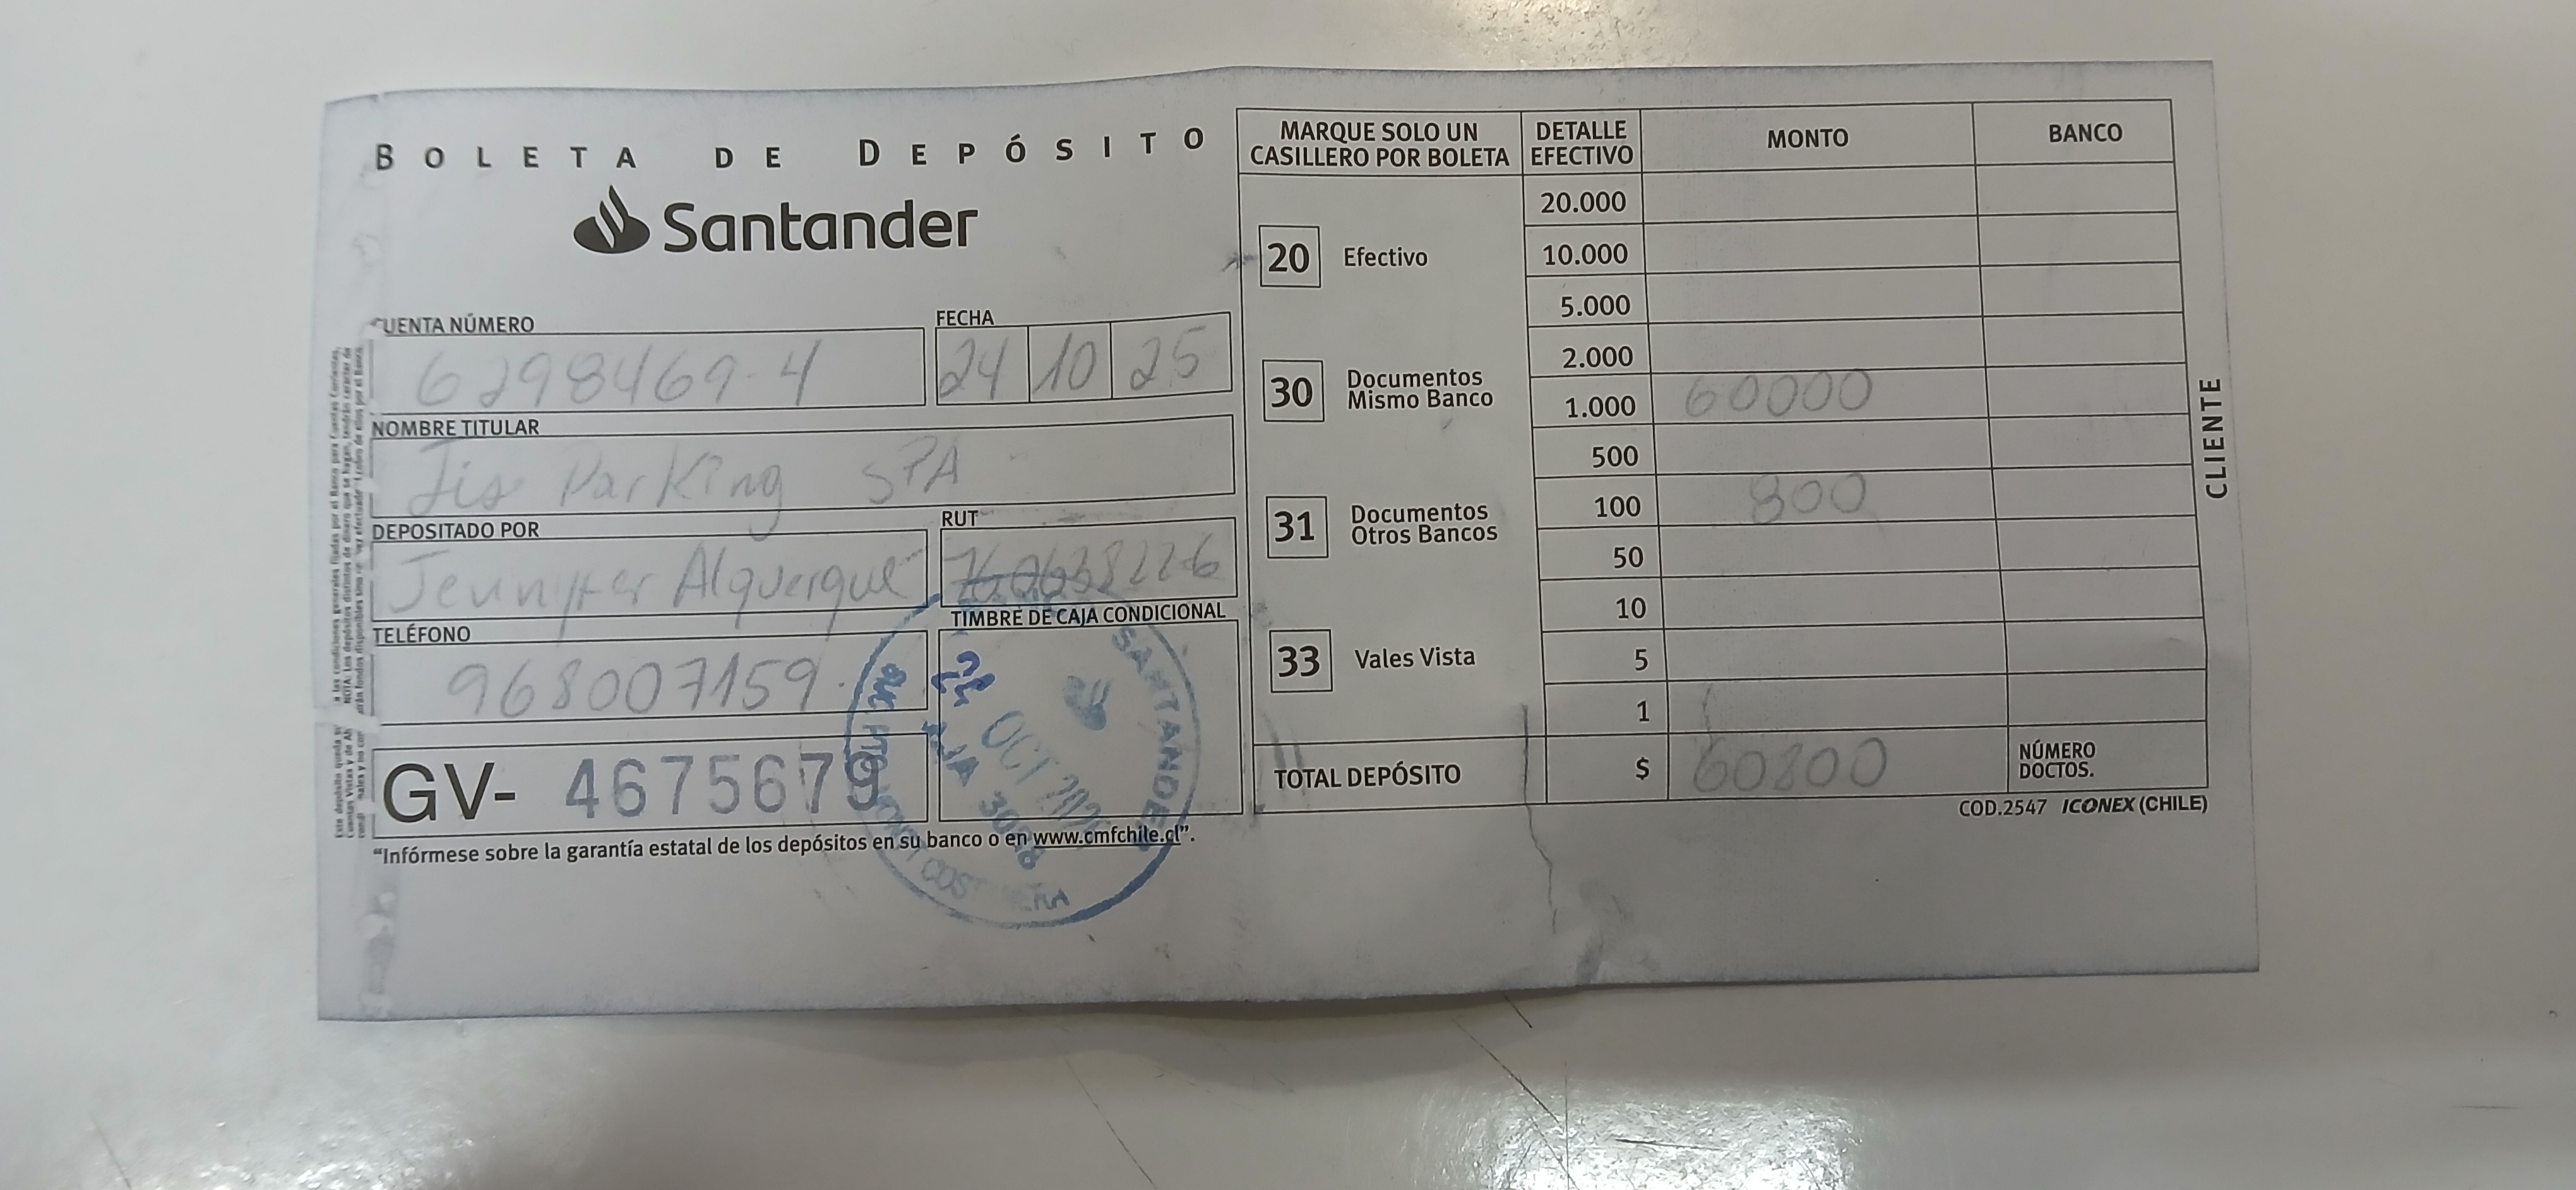 BOLETA DE DEPÓSITO
Santander
CUENTA NÚMERO
6298469-4
FECHA
24 10 25
NOMBRE TITULAR
Jis Parking SPA
DEPOSITADO POR
Jennyfer Alquerque
RUT
76063822-6
TELÉFONO
968007159.
TIMBRE DE CAJA CONDICIONAL
SANTANDER
OCT
GV- 4675679
"Infórmese sobre la garantía estatal de los depósitos en su banco o en www.cmfchile.cl".
MARQUE SOLO UN
CASILLERO POR BOLETA
20 Efectivo
30 Documentos
Mismo Banco
31 Documentos
Otros Bancos
33 Vales Vista
DETALLE
EFECTIVO
MONTO
BANCO
20.000
10.000
5.000
2.000
1.000 60000
500
100 800
50
10
5
1
TOTAL DEPÓSITO $ 60800
NÚMERO
DOCTOS.
COD.2547 ICONEX (CHILE)
CLIENTE